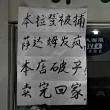 本拉登被捕
萨达姆发疯
本店破产
卖完回家